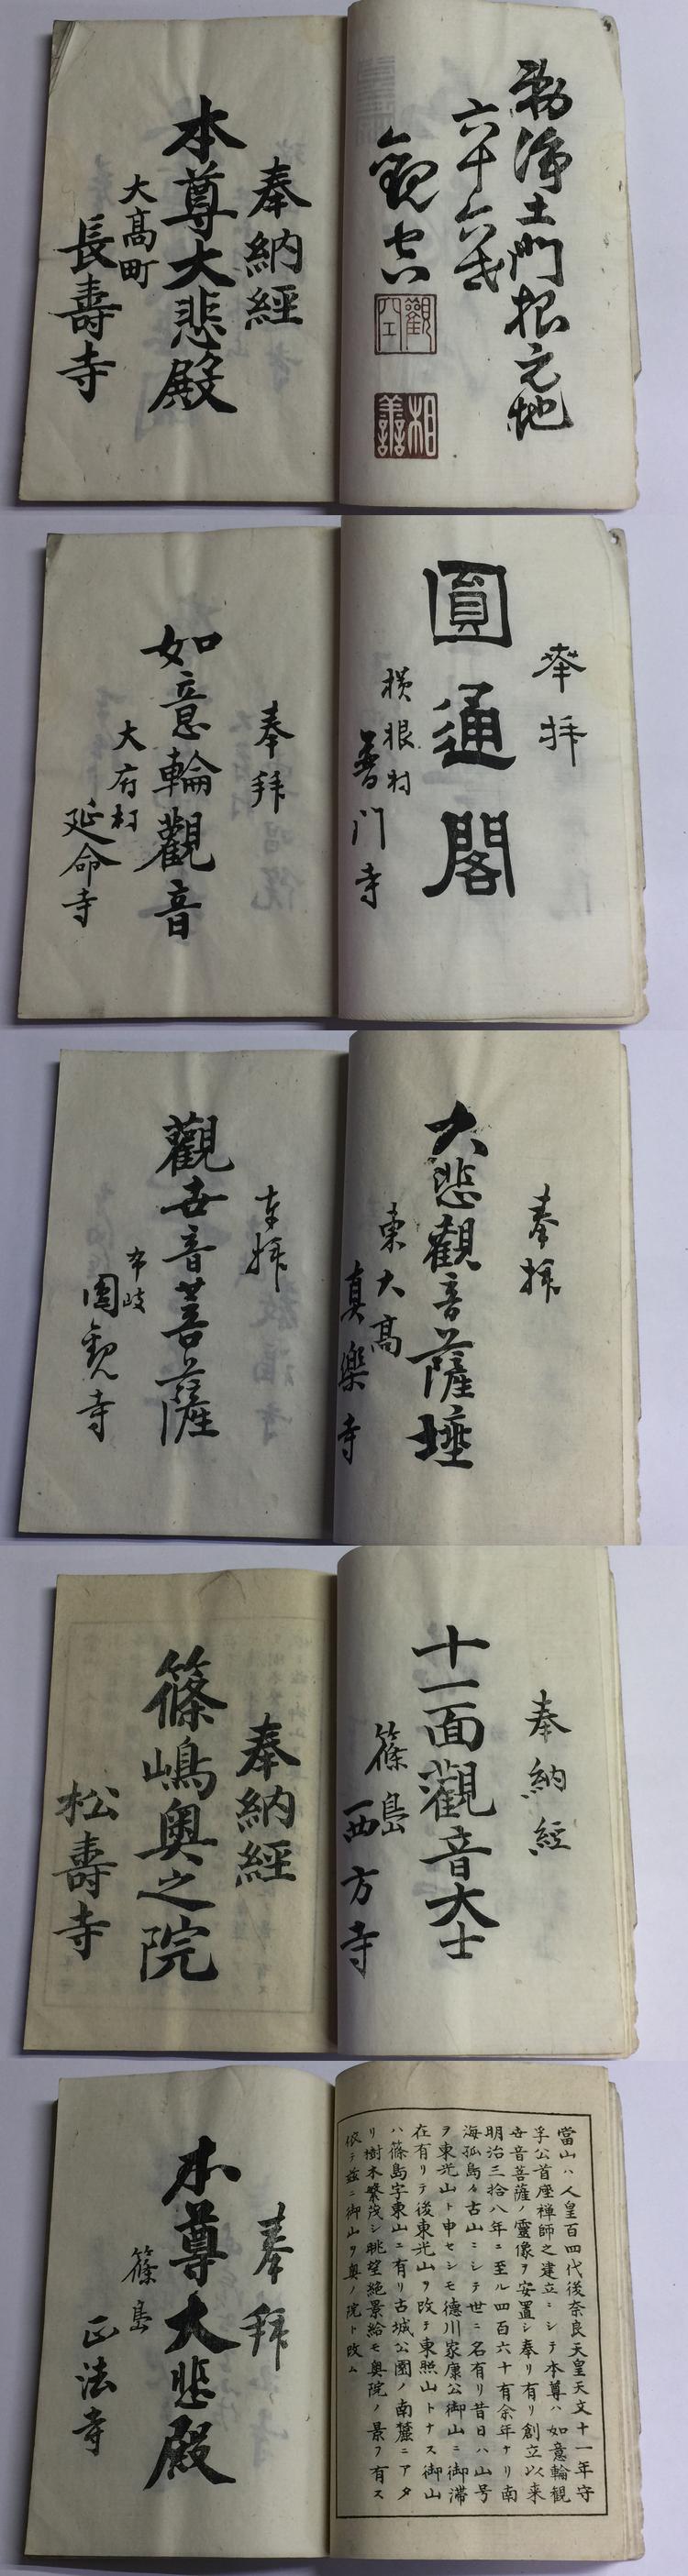 浄土門根元地
六十六歳
観空
觀空
相善
奉納經
本尊大悲殿
大高町
長壽寺
奉拝
圓通閣
横根村
普门寺
奉拜
如意輪觀音
大府村
延命寺
奉拝
大悲觀音薩埵
東大高
真樂寺
奉拜
觀世音菩薩
布岐
圓観寺
奉納經
十一面觀音大士
篠島
西方寺
奉納經
篠嶋奥之院
松壽寺
當山ハ人皇百四代後奈良天皇天文十一年守
孚公首座禅師之建立ニシテ本尊ハ如意輪觀
世音菩薩ノ靈像ヲ安置シ奉リ有リ創立以来
明治三拾八年ニ至ル四百六十有余年ナリ南
海孤島ノ古山ニシテ世ニ名有リ昔日ハ山号
ヲ東光山ト申セシモ德川家康公御山ニ御滞
在有リテ後東光山ヲ改テ東照山トナス御山
ハ篠島字東山ニ有リ古城公園ノ南麓ニアタ
リ樹木繁茂シ眺望絶景給モ奥院ノ景フ有ス
依テ茲ニ御山ヲ奥ノ院ト改ム
奉拜
本尊大悲殿
篠島
正法寺